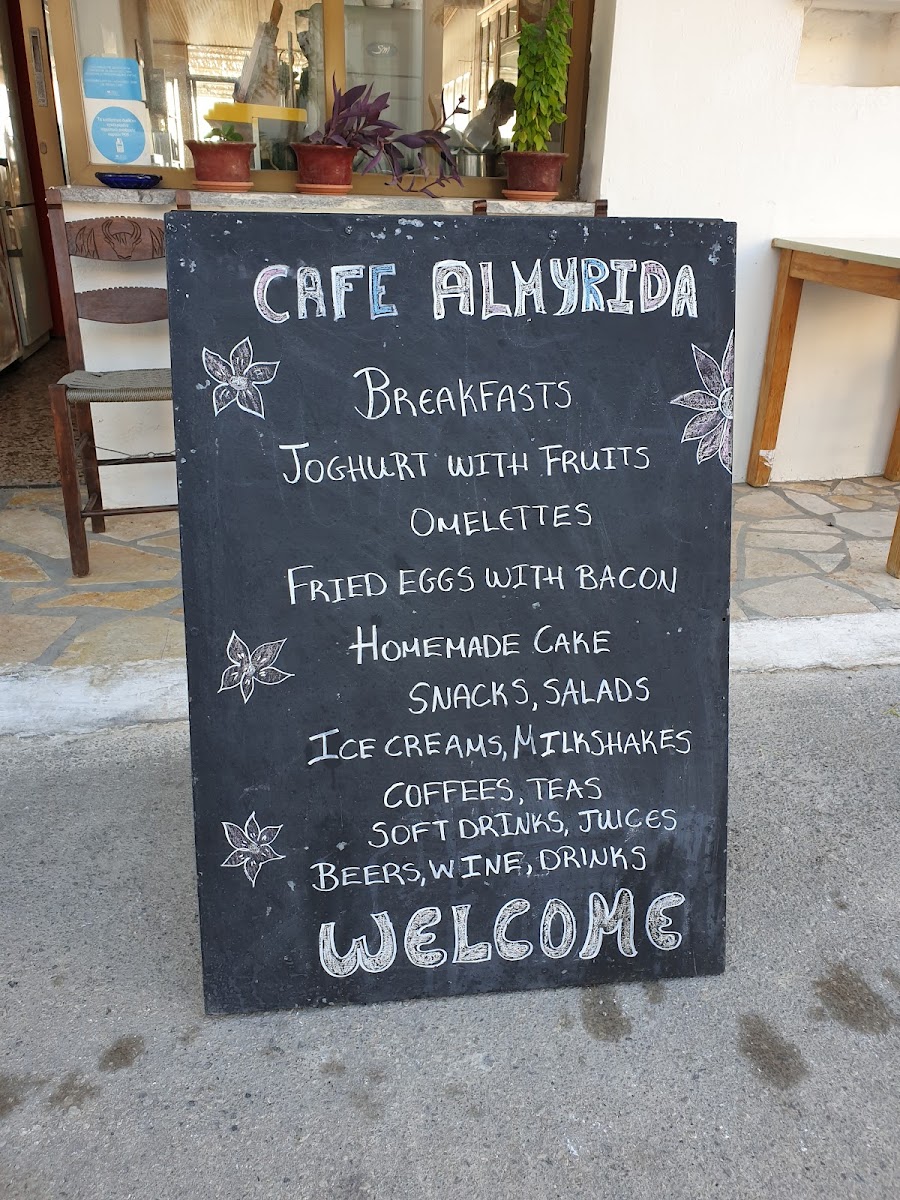 CAFE ALMYRIDA
BREAKFASTS
JOGHURT WITH FRUITS
OMELETTES
FRIED EGGS WITH BACON
HOMEMADE CAKE
SNACKS, SALADS
ICE CREAMS, MILKSHAKES
COFFEES, TEAS
SOFT DRINKS, JUICES
BEERS, WINE, DRINKS
WELCOME